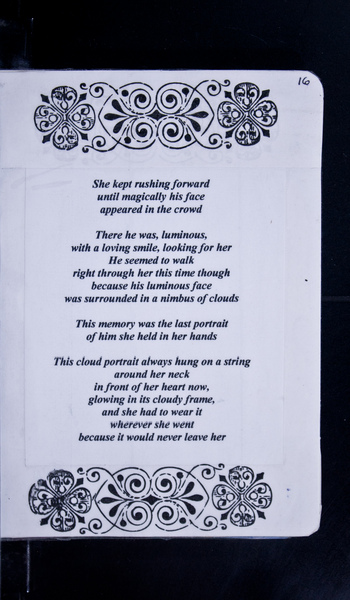 16
She kept rushing forward
until magically his face
appeared in the crowd
There he was, luminous,
with a loving smile, looking for her
He seemed to walk
right through her this time though
because his luminous face
was surrounded in a nimbus of clouds
This memory was the last portrait
of him she held in her hands
This cloud portrait always hung on a string
around her neck
in front of her heart now,
glowing in its cloudy frame,
and she had to wear it
wherever she went
because it would never leave her